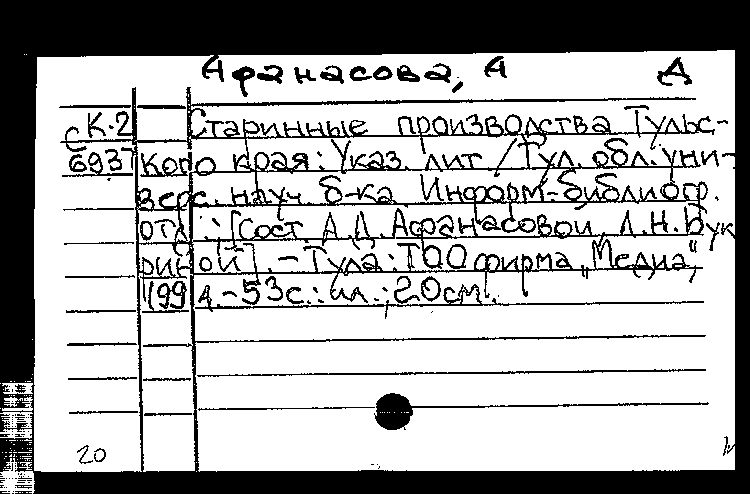 Афанасова, А Д
сК-2 Старинные производства Тульс-
6937 кого края: Указ. лит / Тул. обл. уни-
верс. науч. б-ка Информ-библиогр.
отд.; [Сост. А.Д. Афанасовой, Л.Н. Бук
риной]. - Тула: ТОО фирма „Медиа",
1994. - 53 с.: ил.; 20см.
20